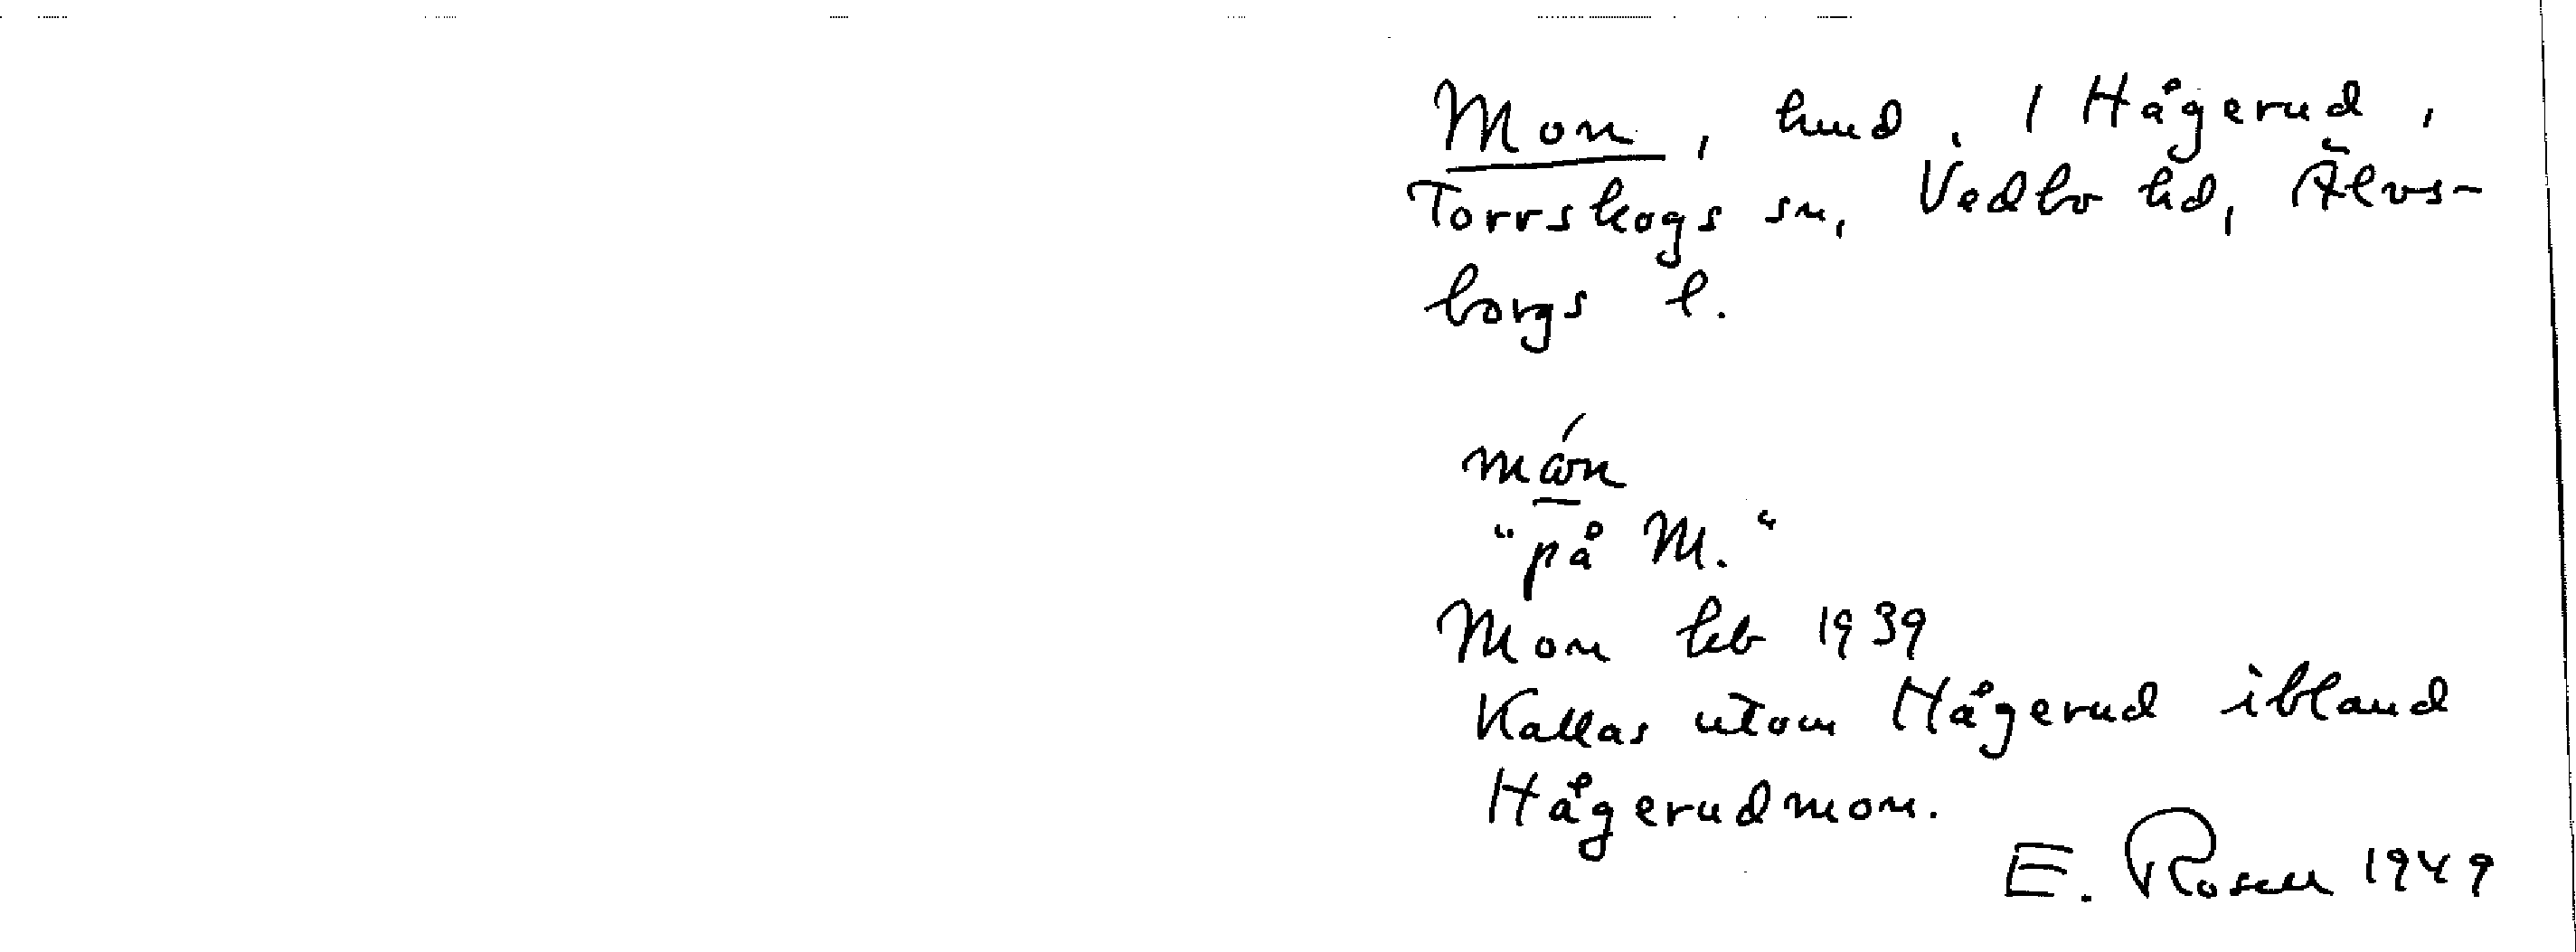 Mon, hmd. 1 Hågerud,
Torrskogs sn, Vedbo hd, Älvs-
borgs l.
"på M."
Mon kb 1939
Kallas utom Hågerud ibland
Hågerudmon.
E. Rosell 1949